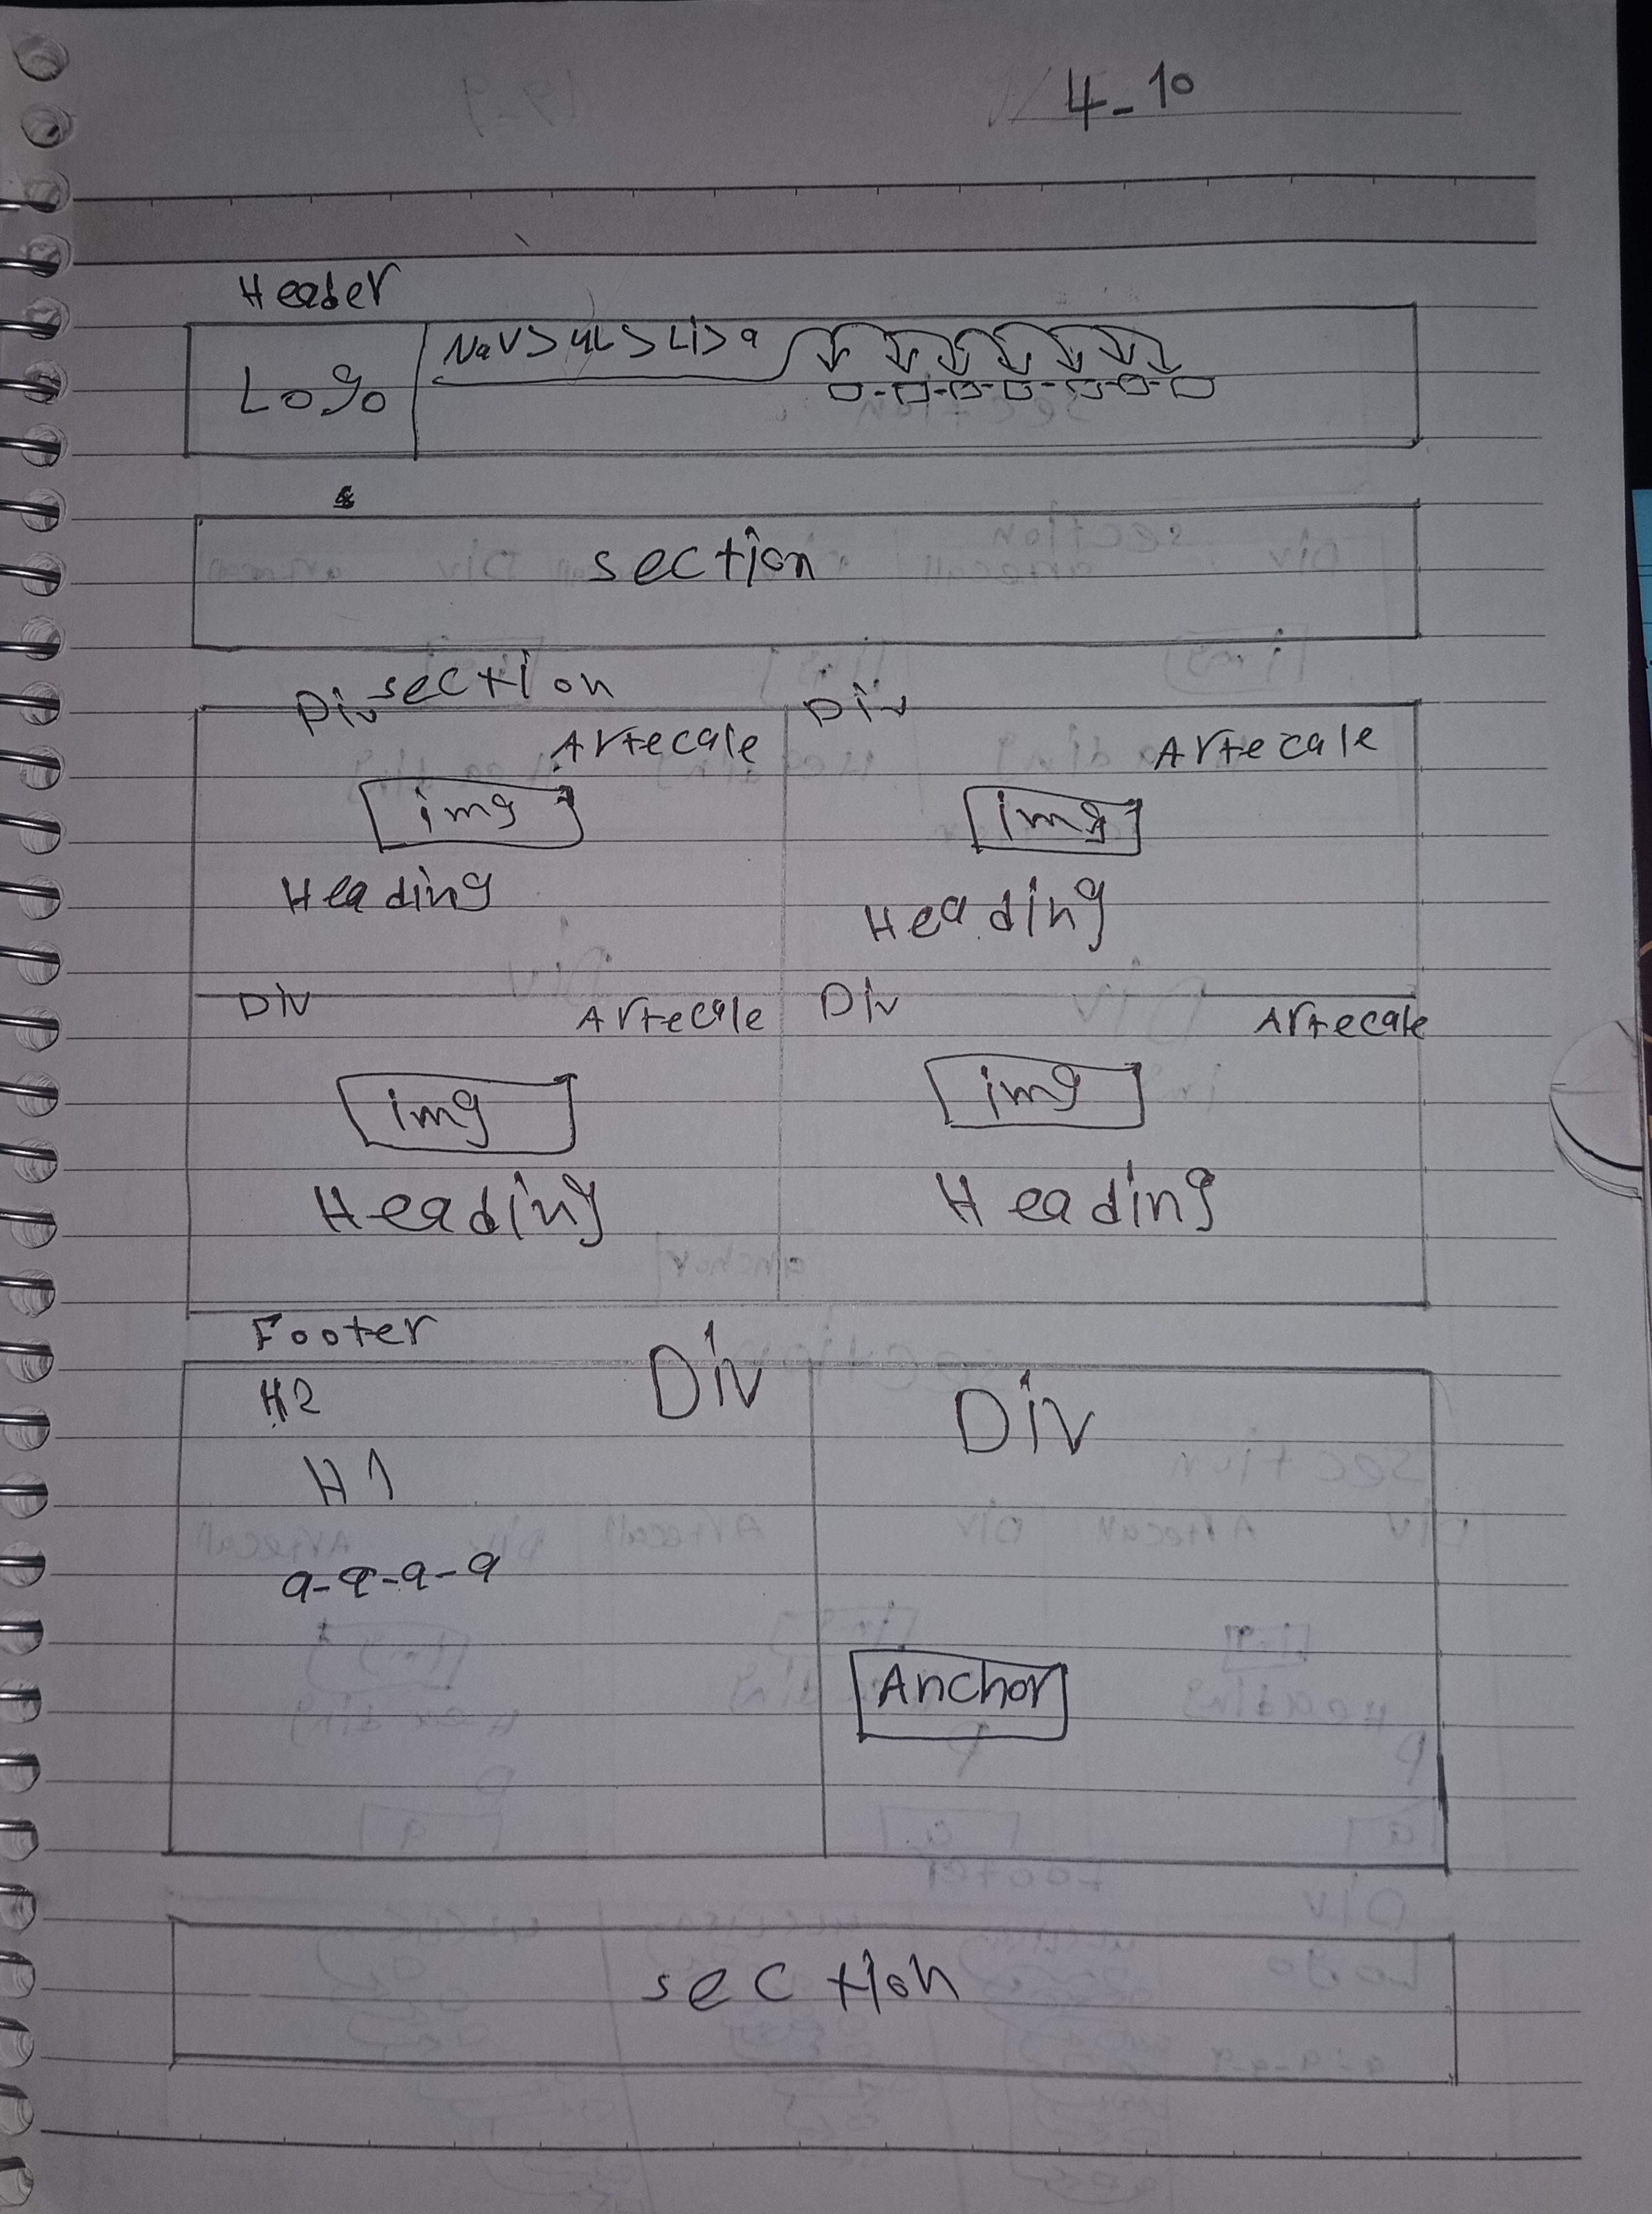 4-10
Header
Logo
Nav>UL>Li>a
section
section
Div
Artecale
img
Heading
Div
Artecale
img
Heading
Div
Artecale
img
Heading
Div
Artecale
img
Heading
Footer
H2
Div
H1
a-a-a-a
Div
Anchor
section